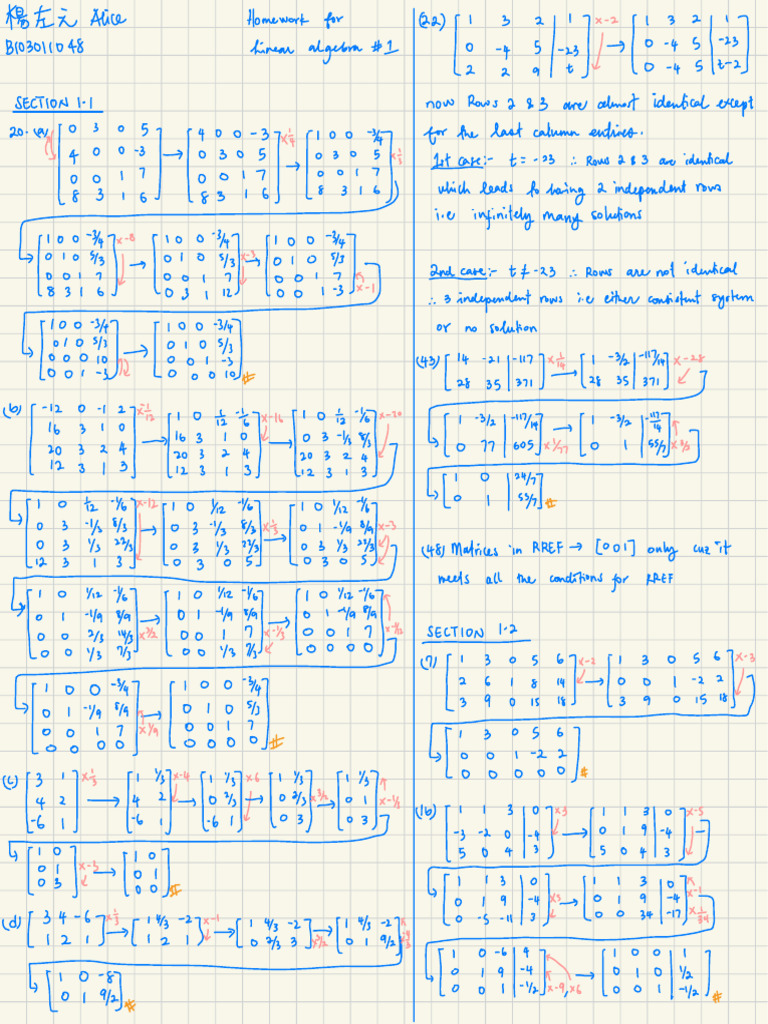 楊左元 Alice Homework for
B103011048 linear algebra #1
SECTION 1.1
20. (a) [0 3 0 5; 4 0 0 -3; 0 0 1 7; 8 3 1 6] → [4 0 0 -3; 0 3 0 5; 0 0 1 7; 8 3 1 6] x1/4 → [1 0 0 -3/4; 0 3 0 5; 0 0 1 7; 8 3 1 6] x1/3
[1 0 0 -3/4; 0 1 0 5/3; 0 0 1 7; 8 3 1 6] x-8 → [1 0 0 -3/4; 0 1 0 5/3; 0 0 1 7; 0 3 1 12] x-3 → [1 0 0 -3/4; 0 1 0 5/3; 0 0 1 7; 0 0 1 -3] x-1
[1 0 0 -3/4; 0 1 0 5/3; 0 0 0 10; 0 0 1 -3] → [1 0 0 -3/4; 0 1 0 5/3; 0 0 1 -3; 0 0 0 10] #
(b) [-12 0 -1 2; 16 3 1 0; 20 3 2 4; 12 3 1 3] x-1/12 → [1 0 1/12 -1/6; 16 3 1 0; 20 3 2 4; 12 3 1 3] x-16 → [1 0 1/12 -1/6; 0 3 -1/3 8/3; 20 3 2 4; 12 3 1 3] x-20
[1 0 1/12 -1/6; 0 3 -1/3 8/3; 0 3 1/3 22/3; 12 3 1 3] x-12 → [1 0 1/12 -1/6; 0 3 -1/3 8/3; 0 3 1/3 22/3; 0 3 0 5] x1/3 → [1 0 1/12 -1/6; 0 1 -1/9 8/9; 0 3 1/3 22/3; 0 3 0 5] x-3
[1 0 1/12 -1/6; 0 1 -1/9 8/9; 0 0 2/3 14/3; 0 0 1/3 7/3] x3/2 → [1 0 1/12 -1/6; 0 1 -1/9 8/9; 0 0 1 7; 0 0 1/3 7/3] x-1/3 → [1 0 1/12 -1/6; 0 1 -1/9 8/9; 0 0 1 7; 0 0 0 0] x-1/12
[1 0 0 -3/4; 0 1 -1/9 8/9; 0 0 1 7; 0 0 0 0] x1/9 → [1 0 0 -3/4; 0 1 0 5/3; 0 0 1 7; 0 0 0 0] #
(c) [3 1; 4 2; -6 1] x1/3 → [1 1/3; 4 2; -6 1] x-4 → [1 1/3; 0 2/3; -6 1] x6 → [1 1/3; 0 2/3; 0 3] x3/2 → [1 1/3; 0 1; 0 3] x-1/3
[1 0; 0 1; 0 3] x-3 → [1 0; 0 1; 0 0] #
(d) [3 4 -6; 1 2 1] x1/3 → [1 4/3 -2; 1 2 1] x-1 → [1 4/3 -2; 0 2/3 3] x3/2 → [1 4/3 -2; 0 1 9/2]
[1 0 -8; 0 1 9/2] #
(22) [1 3 2 | 1; 0 -4 5 | -23; 2 2 9 | t] x-2 → [1 3 2 | 1; 0 -4 5 | -23; 0 -4 5 | t-2]
now Rows 2 & 3 are almost identical except
for the last column entries.
1st case:- t = -23 ∴ Rows 2 & 3 are identical
which leads to having 2 independent rows
i.e infinitely many solutions
2nd case:- t ≠ -23 ∴ Rows are not identical
∴ 3 independent rows i.e either consistent system
or no solution
(43) [14 -21 | -117; 28 35 | 371] x1/14 → [1 -3/2 | -117/14; 28 35 | 371] x-28
[1 -3/2 | -117/14; 0 77 | 605] x1/77 → [1 -3/2 | -117/14; 0 1 | 55/7] x3/2
[1 0 | 24/7; 0 1 | 55/7] #
(48) Matrices in RREF → [001] only cuz it
meets all the conditions for RREF
SECTION 1.2
(7) [1 3 0 5 6; 2 6 1 8 14; 3 9 0 15 18] x-2 → [1 3 0 5 6; 0 0 1 -2 2; 3 9 0 15 18] x-3
[1 3 0 5 6; 0 0 1 -2 2; 0 0 0 0 0] #
(16) [1 1 3 | 0; -3 -2 0 | -4; 5 0 4 | 3] x3 → [1 1 3 | 0; 0 1 9 | -4; 5 0 4 | 3] x-5
[1 1 3 | 0; 0 1 9 | -4; 0 -5 -11 | 3] x5 → [1 1 3 | 0; 0 1 9 | -4; 0 0 34 | -17] x-1 x1/34
[1 0 -6 | 4; 0 1 9 | -4; 0 0 1 | -1/2] x-9, x6 → [1 0 0 | 1; 0 1 0 | 1/2; 0 0 1 | -1/2] #